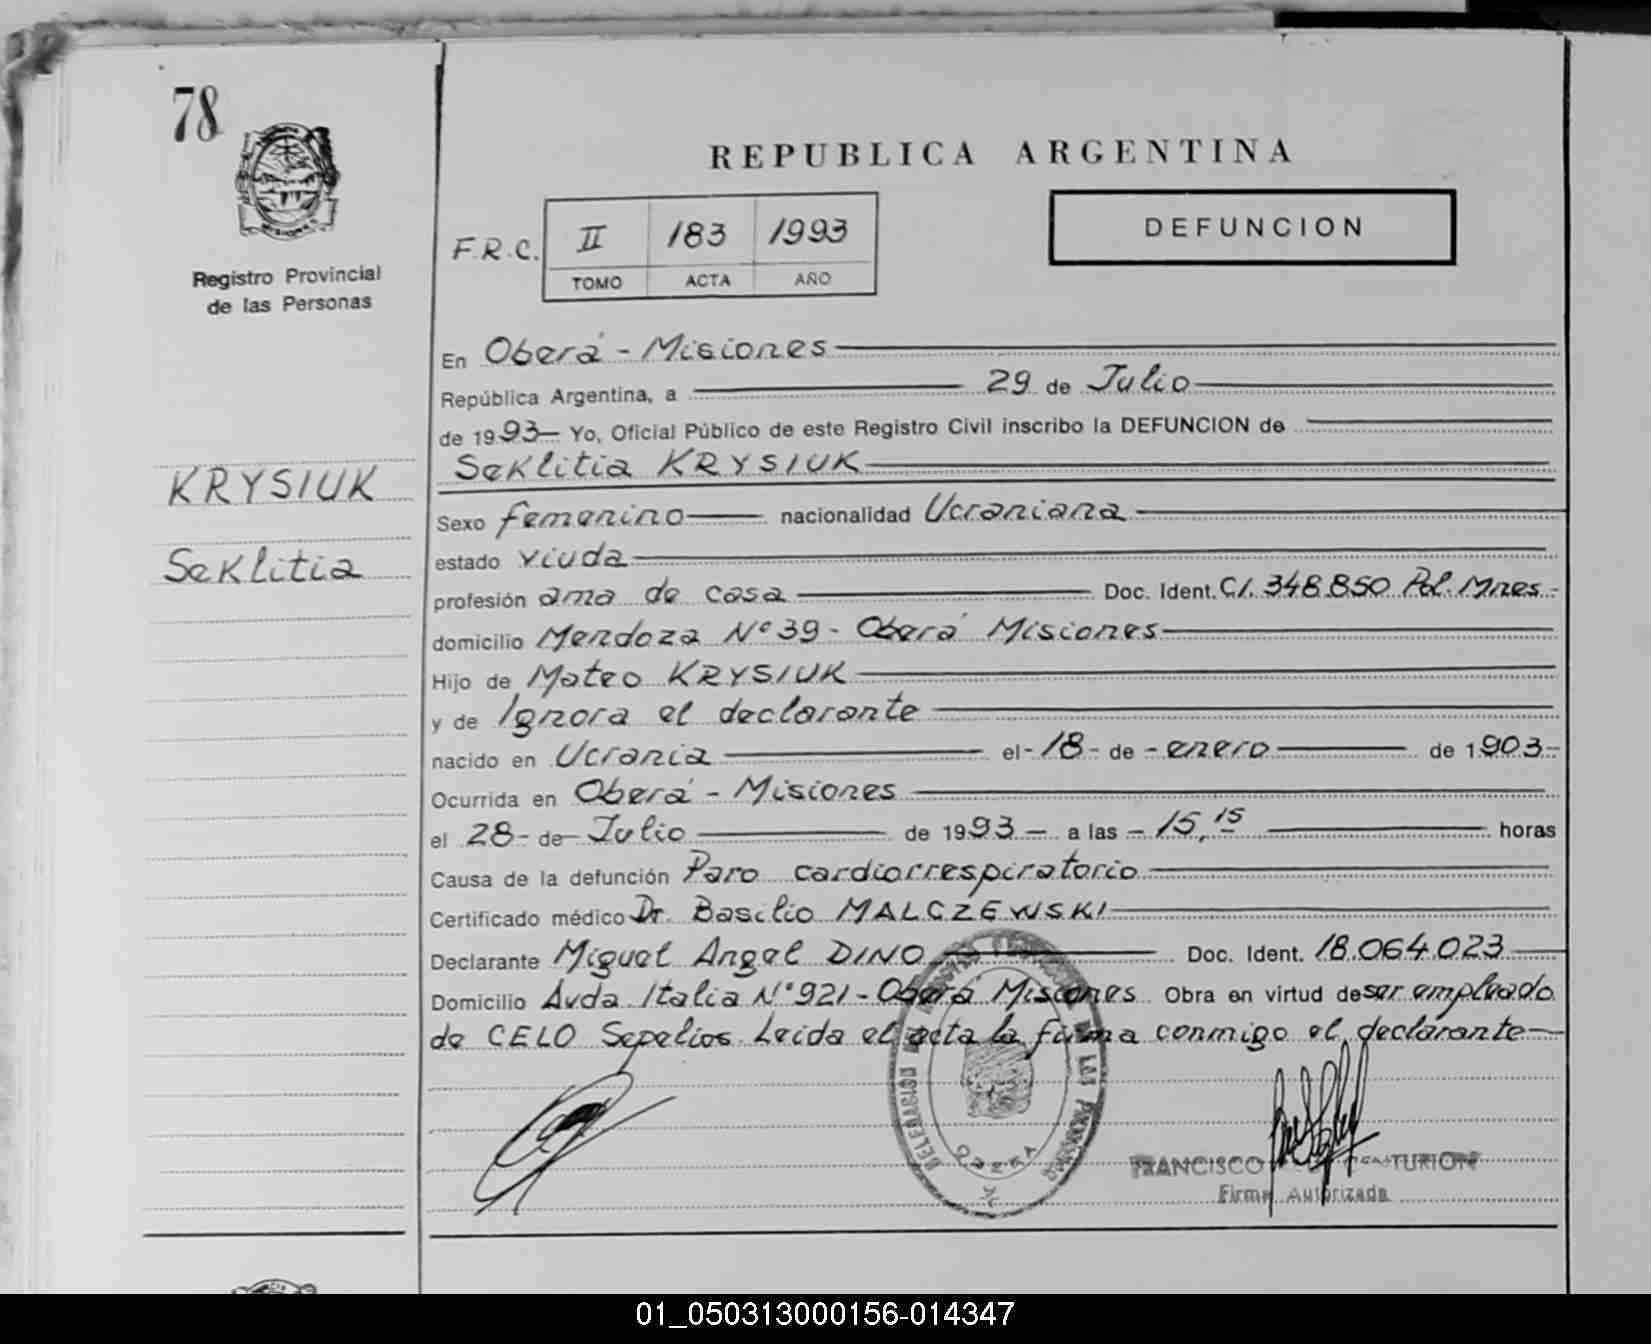 78
MISIONES
Registro Provincial
de las Personas
KRYSIUK
Seklitia
REPUBLICA ARGENTINA
F.R.C. II 183 1993
TOMO ACTA AÑO
DEFUNCION
En Oberá - Misiones
República Argentina, a 29 de Julio
de 1993 Yo, Oficial Público de este Registro Civil inscribo la DEFUNCION de
Seklitia KRYSIUK
Sexo femenino nacionalidad Ucraniana
estado viuda
profesión ama de casa Doc. Ident. C/. 348.850 Pol. Mnes.-
domicilio Mendoza Nº 39 - Oberá Misiones
Hijo de Mateo KRYSIUK
y de Ignora el declarante
nacido en Ucrania el - 18 - de - enero de 1903.-
Ocurrida en Oberá - Misiones
el 28 - de - Julio de 1993 - a las - 15,15 horas
Causa de la defunción Paro cardiorrespiratorio
Certificado médico Dr. Basilio MALCZEWSKI
Declarante Miguel Angel DINO Doc. Ident. 18.064.023
Domicilio Avda. Italia Nº 921 - Oberá Misiones. Obra en virtud de ser empleado
de CELO Sepelios. Leida el acta la firma conmigo el declarante
DELEGACION DE LAS PERSONAS
OBERA
FRANCISCO TURION
Firma Autorizada
01_050313000156-014347